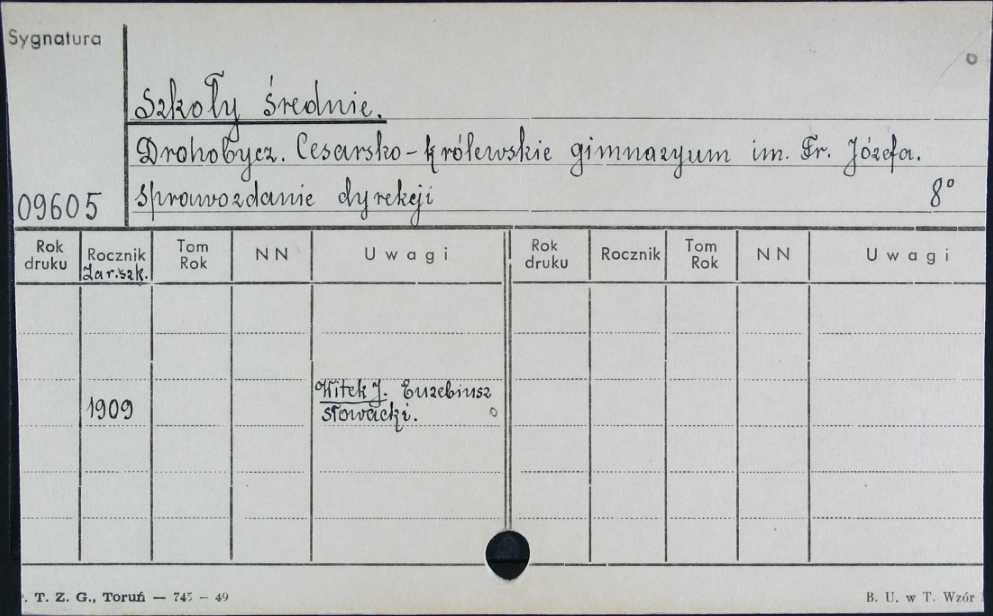 Sygnatura
Szkoły średnie.
Drohobycz. Cesarsko-królewskie gimnazyum im. Fr. Józefa.
09605 sprawozdanie dyrekcji 8°
Rok druku Rocznik Zar.szk. Tom Rok NN Uwagi Rok druku Rocznik Tom Rok NN Uwagi
1909 Witek J. Euzebiusz
Słowacki.
. T. Z. G., Toruń — 745 — 49 B. U. w T. Wzór